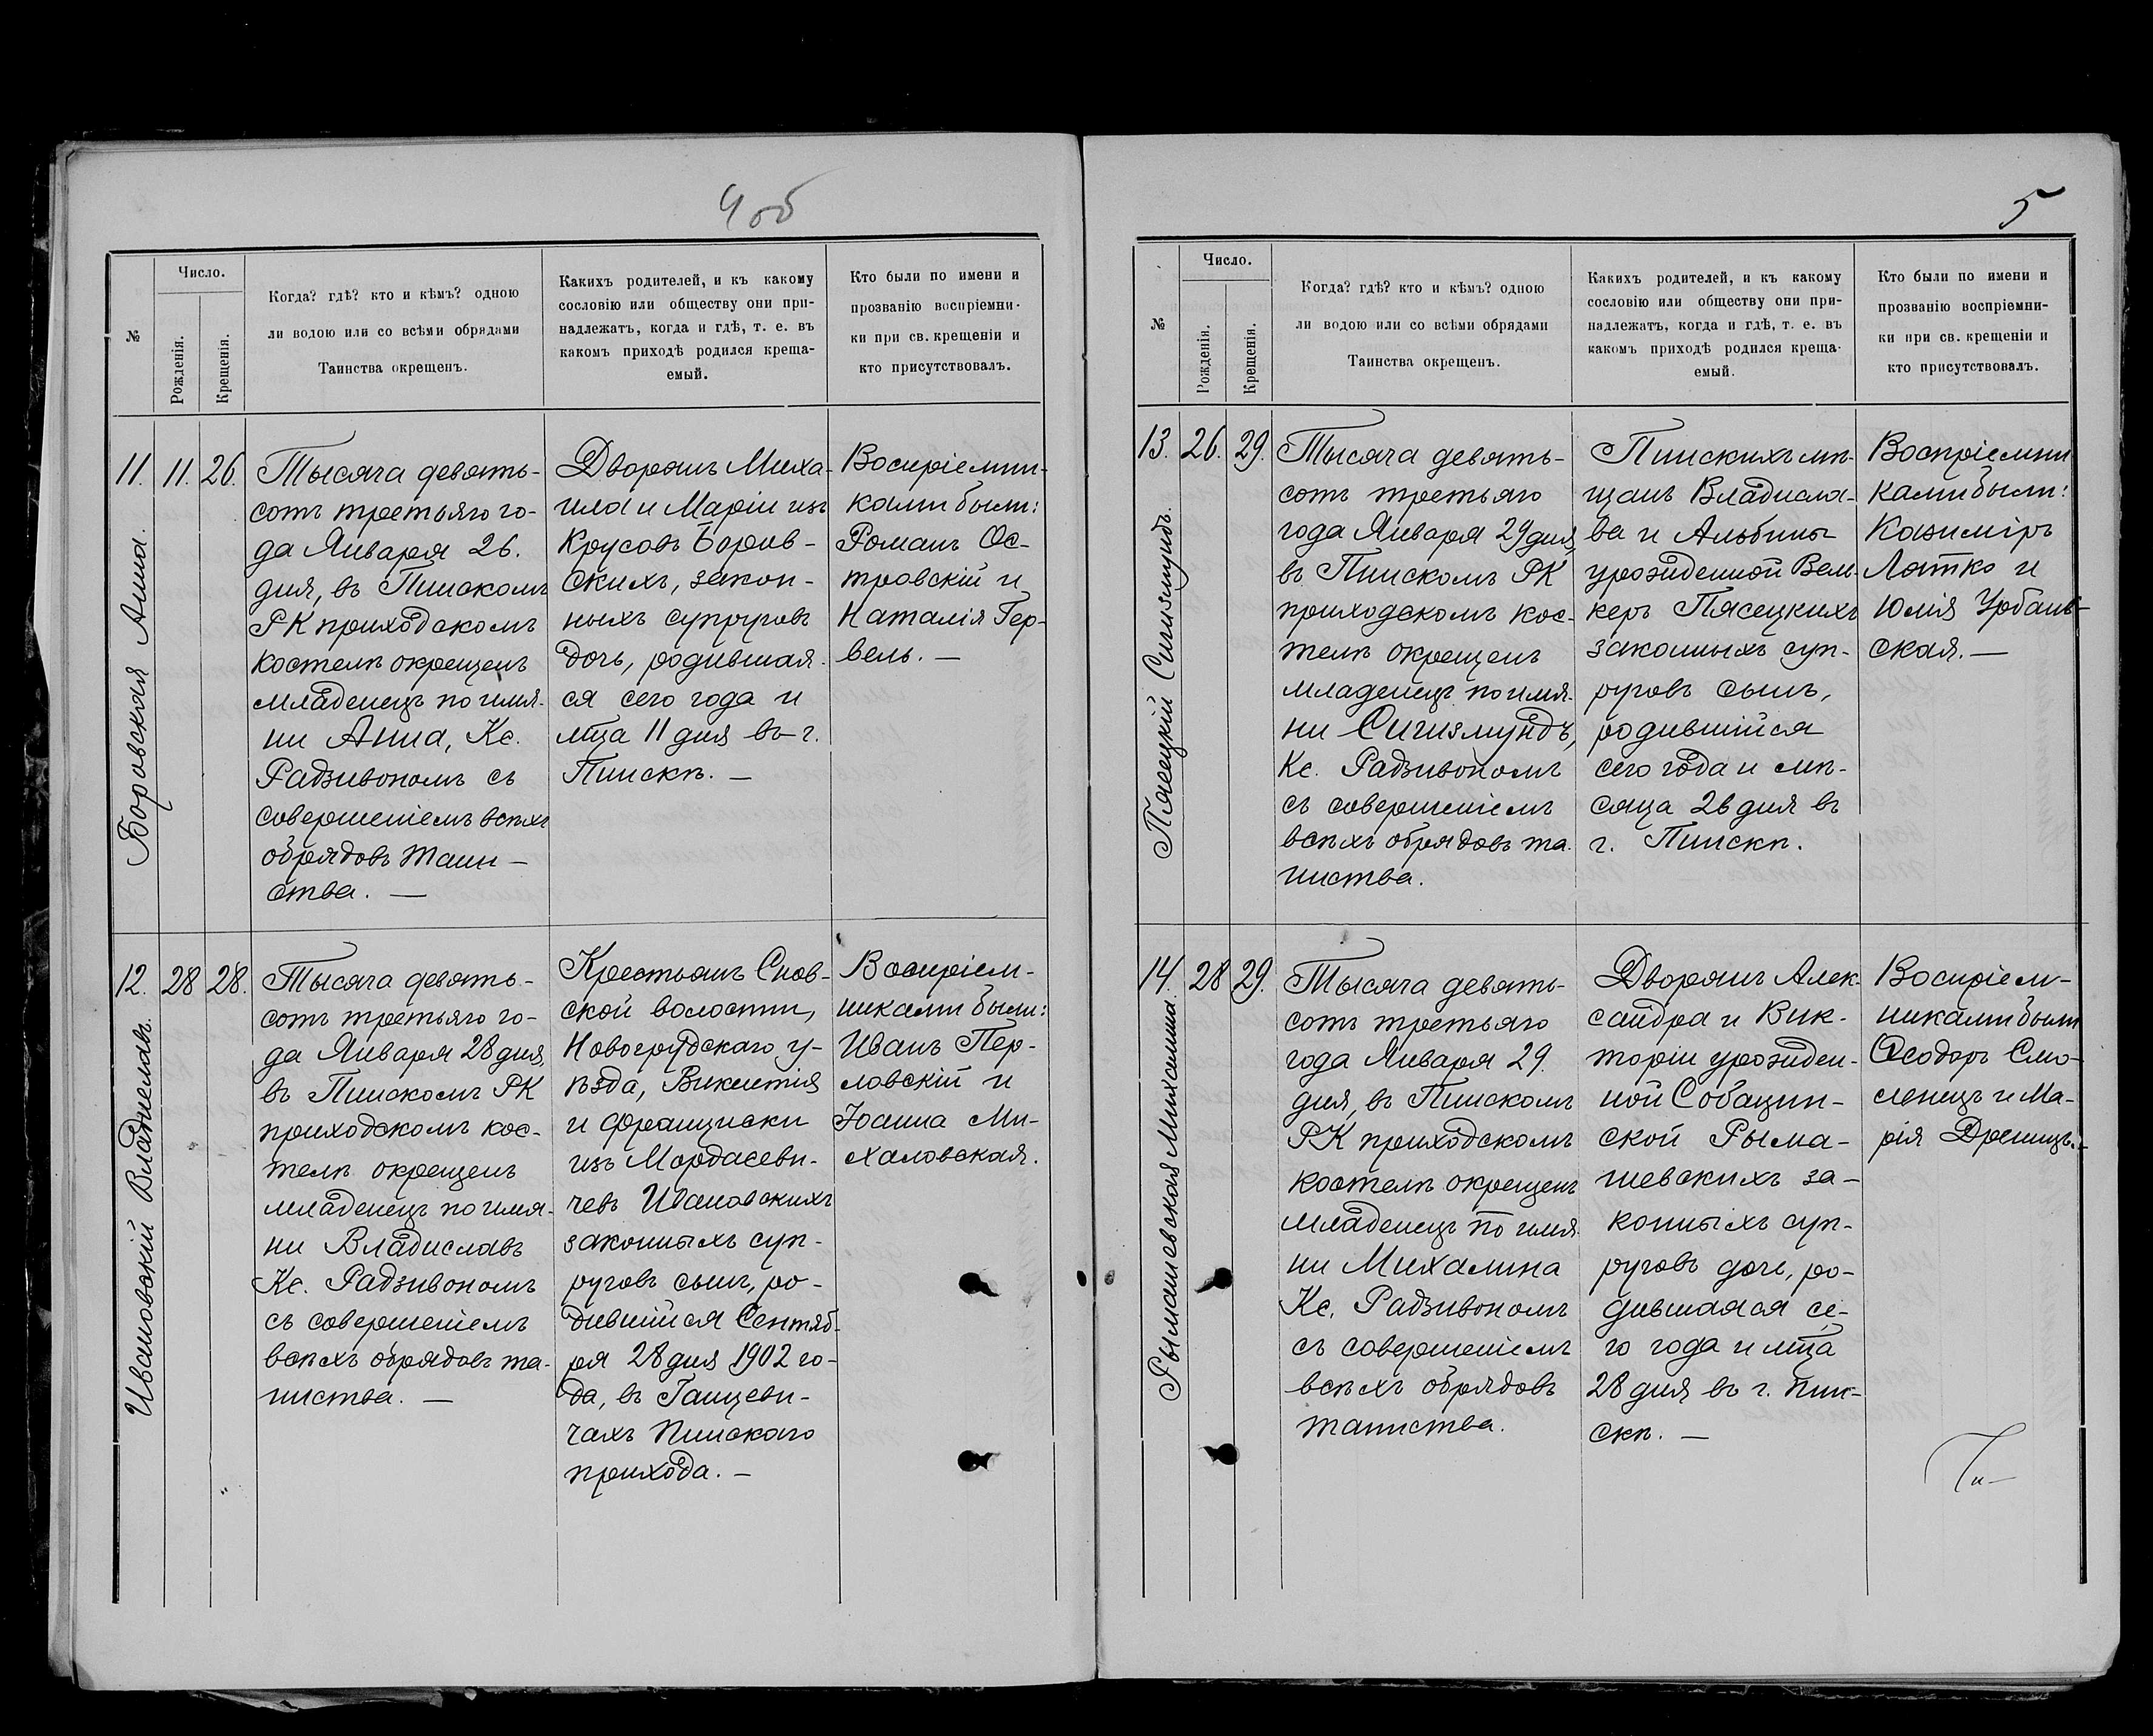 4 об
№
Число.
Рожденія.
Крещенія.
Когда? гдѣ? кто и кѣмъ? одною
ли водою или со всѣми обрядами
Таинства окрещенъ.
Какихъ родителей, и къ какому
сословію или обществу они при-
надлежатъ, когда и гдѣ, т. е. въ
какомъ приходѣ родился креща-
емый.
Кто были по имени и
прозванію воспріемни-
ки при св. крещеніи и
кто присутствовалъ.
Боровская Анна.
11. 11. 26.
Тысяча девять-
сотъ третьяго го-
да Января 26.
дня, въ Пинскомъ
РК приходскомъ
костелѣ окрещенъ
младенецъ по имя-
ни Анна, Кс.
Радзивономъ съ
совершеніемъ всѣхъ
обрядовъ таин-
ства. —
Дворянъ Миха-
ила и Маріи изъ
Крусовъ Боров-
скихъ, закон-
ныхъ супруговъ
дочь, родившая-
ся сего года и
мѣца 11 дня въ г.
Пинскѣ. —
Воспріемни-
ками были:
Романъ Ос-
тровскій и
Наталія Гер-
вель. —
Ивановскій Владиславъ.
12. 28 28.
Тысяча девять-
сотъ третьяго го-
да Января 28 дня,
въ Пинскомъ РК
приходскомъ кос-
телѣ окрещенъ
младенецъ по имя-
ни Владиславъ
Кс. Радзивономъ
съ совершеніемъ
всѣхъ обрядовъ та-
инства. —
Крестьянъ Снов-
ской волости,
Новогрудскаго у-
ѣзда, Викентія
и Франциски
изъ Мордасеви-
чевъ Ивановскихъ
законныхъ суп-
руговъ сынъ, ро-
дившійся Сентяб-
ря 28 дня 1902 го-
да, въ Ганцеви-
чахъ Пинскаго
прихода. —
Воспріем-
никами были:
Иванъ Пер-
ловскій и
Іоанна Ми-
халовская.
5
№
Число.
Рожденія.
Крещенія.
Когда? гдѣ? кто и кѣмъ? одною
ли водою или со всѣми обрядами
Таинства окрещенъ.
Какихъ родителей, и къ какому
сословію или обществу они при-
надлежатъ, когда и гдѣ, т. е. въ
какомъ приходѣ родился креща-
емый.
Кто были по имени и
прозванію воспріемни-
ки при св. крещеніи и
кто присутствовалъ.
Пясецкій Сигизмундъ.
13. 26. 29.
Тысяча девять-
сотъ третьяго
года Января 29 дня,
въ Пинскомъ РК
приходскомъ кос-
телѣ окрещенъ
младенецъ по имя-
ни Сигизмундъ,
Кс. Радзивономъ
съ совершеніемъ
всѣхъ обрядовъ та-
инства.
Пинскихъ мѣ-
щанъ Владисла-
ва и Альбины
урожденной Вель-
керъ Пясецкихъ
законныхъ суп-
руговъ сынъ,
родившійся
сего года и мѣ-
сяца 26 дня въ
г. Пинскѣ.
Воспріемни
ками были:
Казиміръ
Лятко и
Юлія Урбанов-
ская. —
Рымашевская Михалина.
14. 28 29.
Тысяча девять-
сотъ третьяго
года Января 29.
дня, въ Пинскомъ
РК приходскомъ
костелѣ окрещенъ
младенецъ по имя-
ни Михалина
Кс. Радзивономъ
съ совершеніемъ
всѣхъ обрядовъ
таинства.
Дворянъ Алек-
сандра и Вик-
торіи урожден-
ной Собацин-
ской Рыма-
шевскихъ за-
конныхъ суп-
руговъ дочь, ро-
дившаяся се-
го года и мѣца
28 дня въ г. Пин-
скѣ. —
Воспріем-
никами были
Ѳеодоръ Смо-
ленецъ и Ма-
рія Дреницъ. —